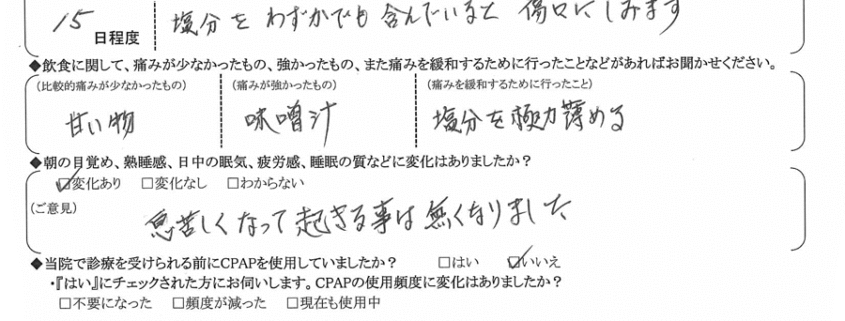 15
日程度
塩分をわずかでも含んでいると傷口にしみます
◆飲食に関して、痛みが少なかったもの、強かったもの、また痛みを緩和するために行ったことなどがあればお聞かせください。
(比較的痛みが少なかったもの) (痛みが強かったもの) (痛みを緩和するために行ったこと)
甘い物 味噌汁 塩分を極力薄める
◆朝の目覚め、熟睡感、日中の眠気、疲労感、睡眠の質などに変化はありましたか?
☑変化あり □変化なし □わからない
(ご意見)
息苦しくなって起きる事は無くなりました
◆当院で診療を受けられる前にCPAPを使用していましたか? □はい ☑いいえ
・『はい』にチェックされた方にお伺いします。CPAPの使用頻度に変化はありましたか?
□不要になった □頻度が減った □現在も使用中